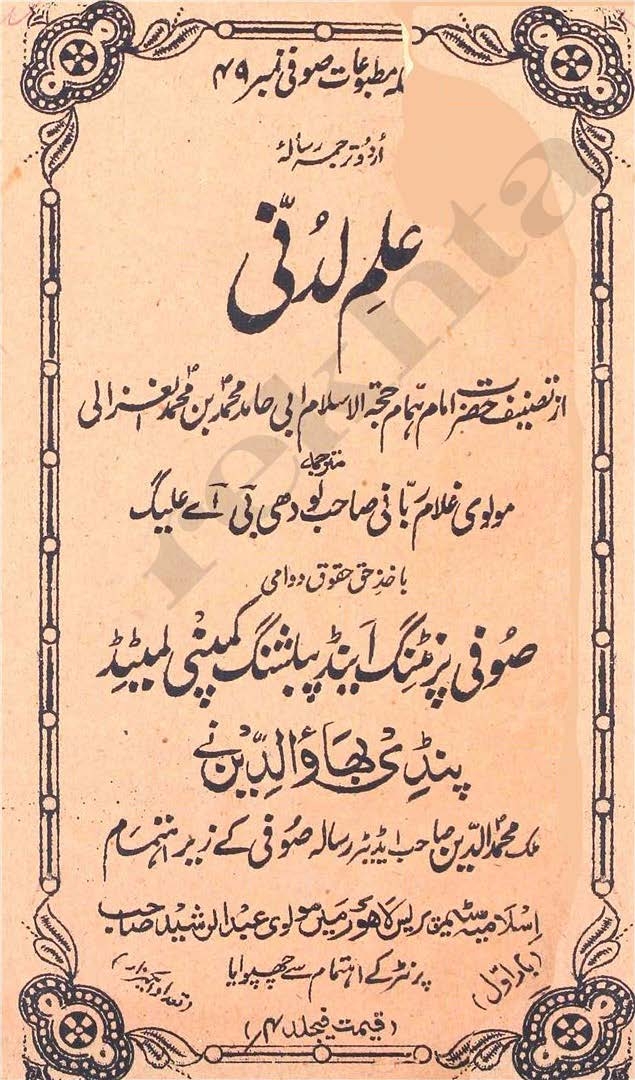 مطبوعات صوفی نمبر ۴۹
اُردو ترجمہ رسالۂ
علمِ لدُنّی
از تصنیف حضرت امام ہمام حجۃ الاسلام ابی حامد محمد بن محمد الغزالی
مترجمہ
مولوی غلام ربّانی صاحب لودھی بی اے علیگ
باخذِ حق حقوق دوامی
صُوفی پرنٹنگ اینڈ پبلشنگ کمپنی لمیٹڈ
پنڈی بہاؤالدّین نے
ملک محمد الدّین صاحب ایڈیٹر رسالہ صُوفی کے زیر اہتمام
اسلامیہ سٹیم پریس لاہور میں مولوی عبدالرشید صاحب
پرنٹر کے اہتمام سے چھپوایا
(بار اوّل)
(تعداد ایکہزار)
(قیمت فیجلد ۴؍)
rekhta